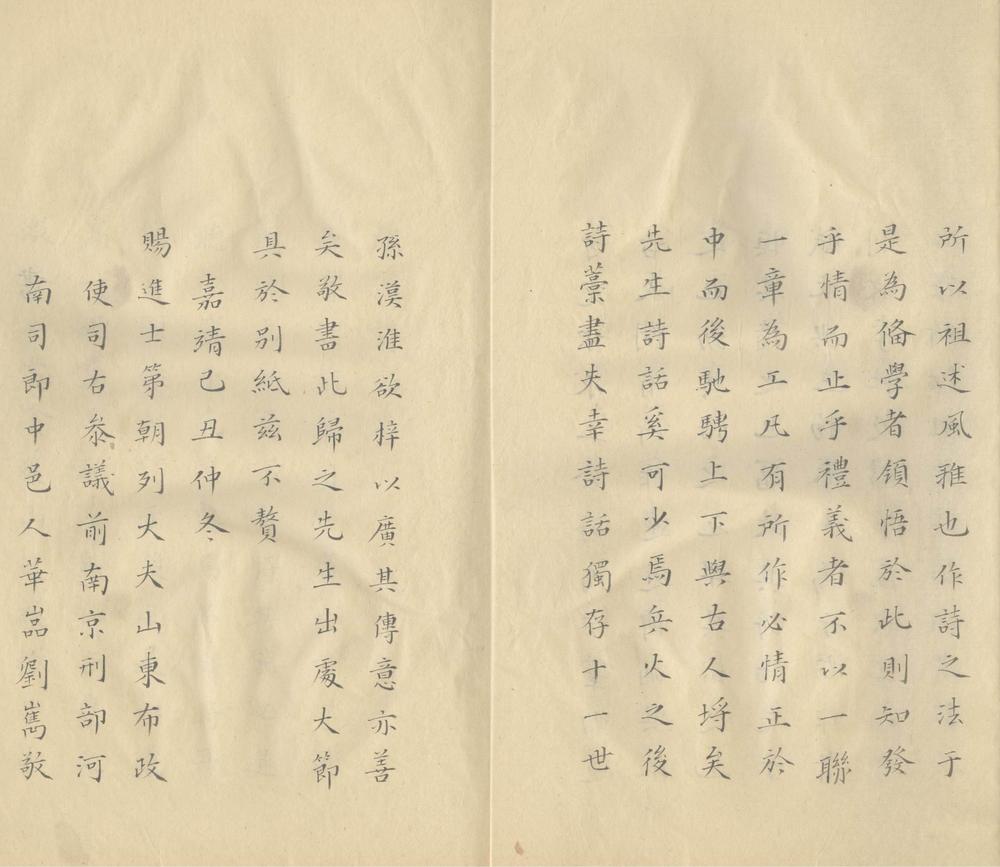 所以祖述風雅也作詩之法于
是為俻學者領悟於此則知發
乎情而止乎禮義者不以一聯
一章為工凡有所作必情正於
中而後馳騁上下與古人埒矣
先生詩話奚可少焉兵火之後
詩藁盡失幸詩話獨存十一世
孫漢淮欲梓以廣其傳意亦善
矣敬書此歸之先生出處大節
具於別紙茲不贅
嘉靖己丑仲冬
賜進士第朝列大夫山東布政
使司右叅議前南京刑部河
南司郎中邑人華嵓劉雟敬